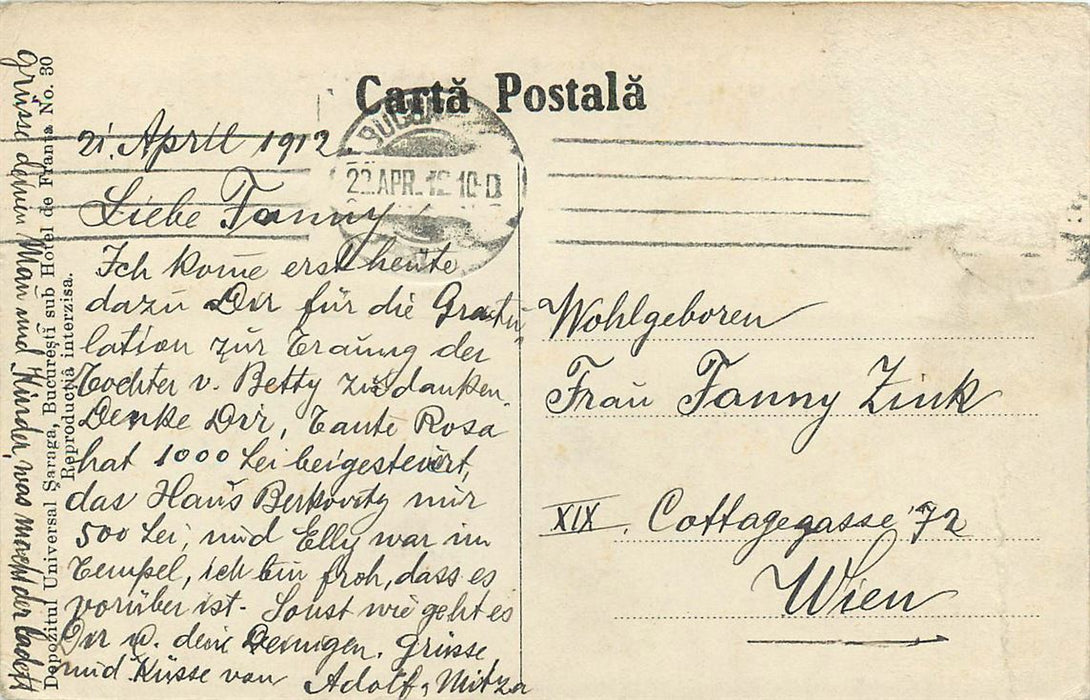 Cartă Postală
BUCU
22 APR. 12 10-D
21. April 1912
Liebe Fanny
Ich kome erst heute
dazu Dir für die Gratu
lation zur Trauung der
Tochter v. Betty zu danken.
Denke Dir, Tante Rosa
hat 1000 Lei beigesteuert,
das Haus Berkovitz nur
500 Lei, und Elly war im
Tempel, ich bin froh, dass es
vorüber ist. Sonst wie geht es
Dir u. deine Deinigen. Grüsse
und Küsse von Adolf, Mitza
Grüsse deinen Man und Kinder, was macht der
Depozitul Universal Şaraga, Bucureşti sub Hotel de Franţa No. 30
Reproducţia interzisa.
Wohlgeboren
Frau Fanny Zink
XIX, Cottagegasse 72
Wien